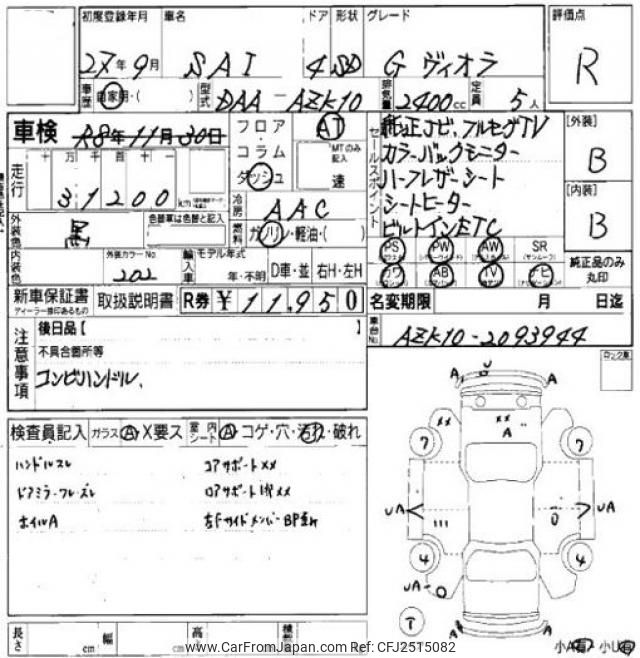 初度登録年月 車名 ドア 形状 グレード 評価点
27年9月 SAI 4 SD G ヴィオラ R
車歴 自家用・( ) 型式 DAA-AZK10 排気量 2400cc 定員 5人
車検 R8年11月30日 フロア コラム ダッシュ AT MTのみ記入 速
セールスポイント 純正ナビ、フルセグTV
カラーバックモニター
ハーフレザーシート
シートヒーター
ビルトインETC
[外装] B
[内装] B
走行 十 万 千 百 十 一
31200 km
冷房 AAC
外装色 黒 色替車は色替と記入
燃料 ガソリン・軽油・( )
PS PW AW SR
カワ AB TV ナビ
純正品のみ丸印
内装色 外装カラーNo 202 輸入車 モデル年式 年・不明 D車・並 右H・左H
新車保証書 ディーラー捺印あるもの 取扱説明書 R券 ¥11,950
名変期限 月 日迄
車台No. AZK10-2093944
注意事項 後日品【 】
不具合箇所等
コンビハンドル、
ロック車
検査員記入 ガラス A・X要ス 室内シート A コゲ・穴・汚れ・破れ
ハンドルスレ コアサポートXX
ドアミラーフレーズレ ロアサポート
ホイルA 左Fサイドメンバー
A U A
XX XX A
7 7
UA UA
4 4
UA
T
長さ cm 幅 cm 高さ cm 積載
小A有 小U有
www.CarFromJapan.com Ref: CFJ2515082